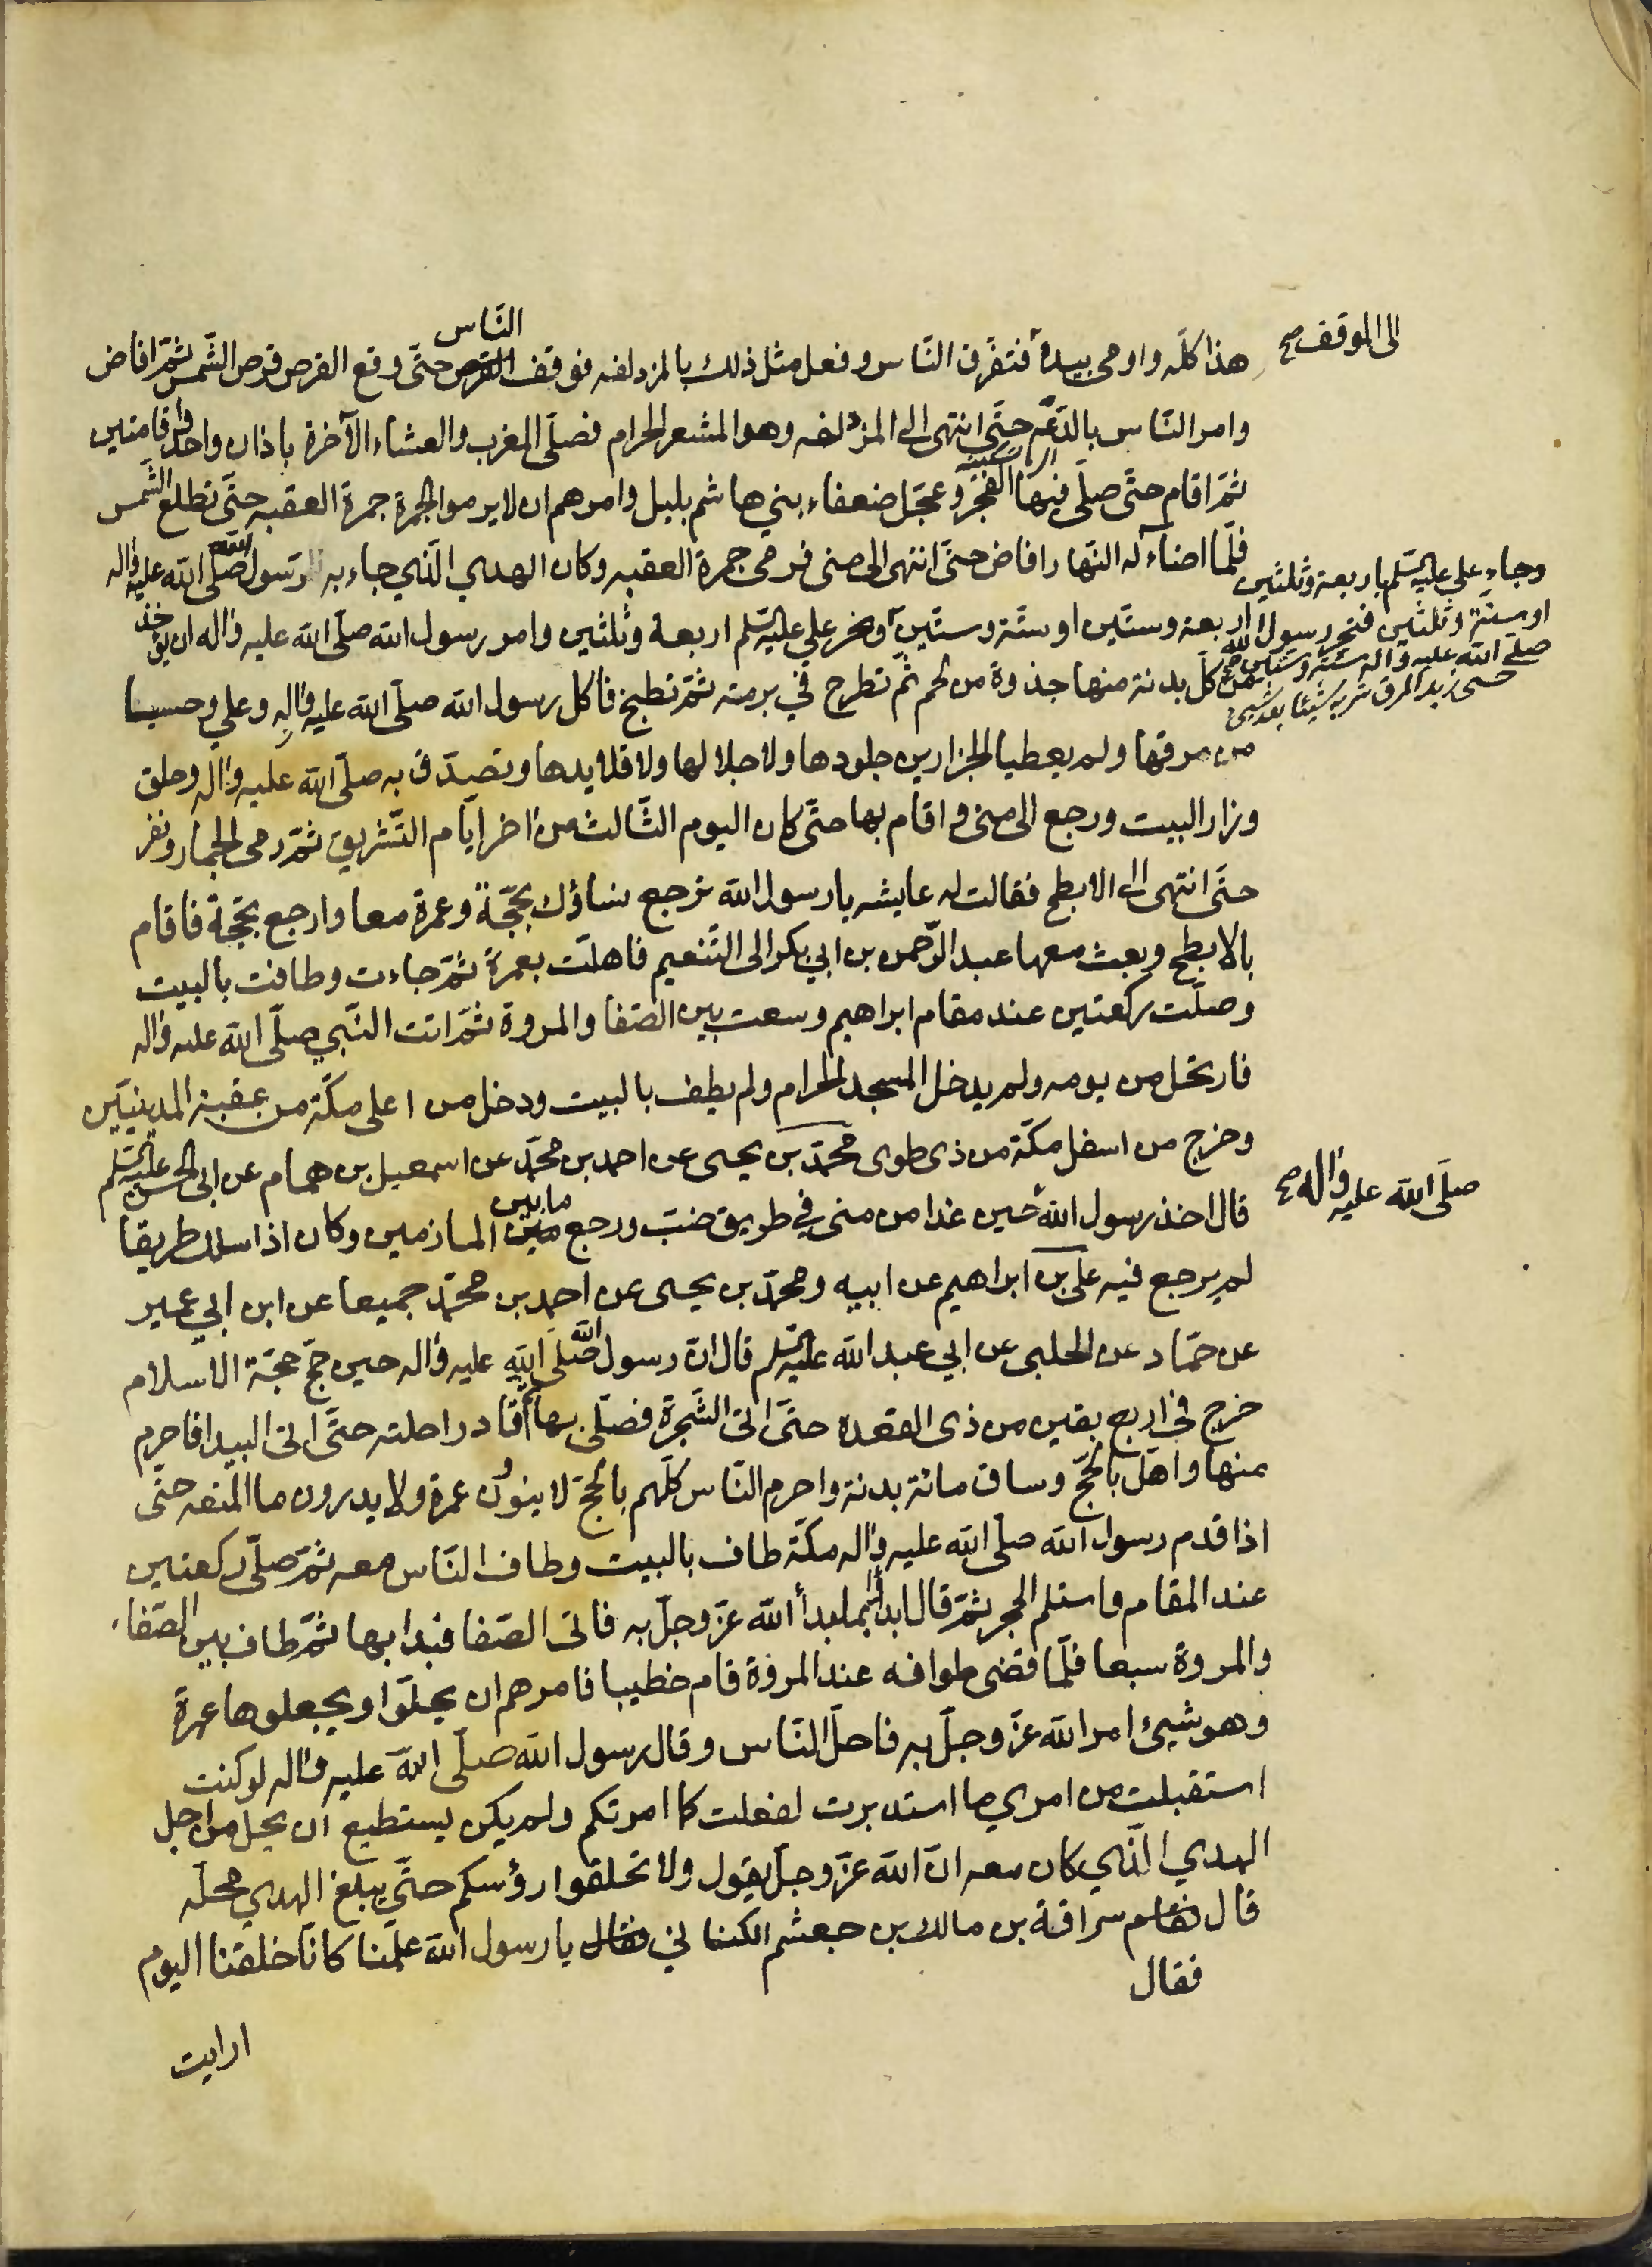 الى الموقف صح
الناس
هذا كلّه واومى بيده فتفرّق النّاس وفعل مثل ذلك بالمزدلفه فوقف حتّى وقع القرص قرص الشّمس ثمّ افاض
وامر النّاس بالدّعة حتّى انتهى الى المزدلفه وهو المشعر الحرام فصلّى المغرب والعشاء الآخرة باذان واحد واقامتين
ثمّ اقام حتّى صلّى فيها الفجر وعجّل ضعفاء بني هاشم بليل وامرهم ان لا يرموا الجمرة جمرة العقبه حتّى تطلع الشّمس
فلمّا اضاء له النّهار افاض حتّى انتهى الى منى فرمى جمرة العقبه وكان الهدي الّذي جاء به رسول الله صلّى الله عليه وآله
وجاء علي عليه السّلم باربعة وثلثين
او ستّة وثلثين فنحر رسول الله
صلّى الله عليه وآله ستّة وستّين صح
اربعة وستّين او ستّة وستّين ونحر علي عليه السّلم اربعة وثلثين وامر رسول الله صلّى الله عليه وآله ان يؤخذ
من كلّ بدنة منها جذوة من لحم ثمّ تطرح في برمة ثمّ تطبخ فاكل رسول الله صلّى الله عليه وآله وعلي وحسيا
من مرقها ولم يعطيا الجزارين جلودها ولا جلالها ولا قلايدها وتصدّق به صلّى الله عليه وآله وحلق
وزار البيت ورجع الى منى واقام بها حتّى كان اليوم الثّالث من اخر ايّام التّشريق ثمّ رمى الجمار ونفر
حتّى انتهى الى الابطح فقالت له عايشه يا رسول الله ترجع نساؤك بحجّة وعمرة معا وارجع بحجّة فاقام
بالابطح وبعث معها عبد الرّحمن بن ابي بكر الى التّنعيم فاهلّت بعمرة ثمّ جاءت وطافت بالبيت
وصلّت ركعتين عند مقام ابراهيم وسعت بين الصّفا والمروة ثمّ اتت النّبي صلّى الله عليه وآله
فارتحل من يومه ولم يدخل المسجد الحرام ولم يطف بالبيت ودخل من اعلى مكّة من عقبة المدينيّين
وخرج من اسفل مكّة من ذى طوى محمّد بن يحيى عن احمد بن محمّد عن اسمعيل بن همام عن ابى الحسن عليه السّلم
صلّى الله عليه وآله صح
ما بين
قال اخذ رسول الله حين غدا من منى في طريق ضبّ ورجع المازمين وكان اذا سلك طريقا
لم يرجع فيه علي بن ابراهيم عن ابيه ومحمّد بن يحيى عن احمد بن محمّد جميعا عن ابن ابي عمير
عن حمّاد عن الحلبى عن ابي عبد الله عليه السّلم قال ان رسول الله صلّى الله عليه وآله حين حجّ حجّة الاسلام
خرج في اربع بقين من ذى القعده حتّى اتى الشّجرة فصلّى بها ثمّ قاد راحلته حتّى اتى البيدا فاحرم
منها واهلّ بالحجّ وساق مائة بدنة واحرم النّاس كلّهم بالحجّ لا ينوون عمرة ولا يدرون ما المتعه حتّى
اذا قدم رسول الله صلّى الله عليه وآله مكّة طاف بالبيت وطاف النّاس معه ثمّ صلّى ركعتين
عند المقام واستلم الحجر ثمّ قال ابدأ بما بدأ الله عزّ وجلّ به فاتى الصّفا فبدا بها ثمّ طاف بين الصّفا
والمروة سبعا فلمّا قضى طوافه عند المروة قام خطيبا فامرهم ان يحلّوا ويجعلوها عمرة
وهو شيئ امر الله عزّ وجلّ به فاحلّ النّاس وقال رسول الله صلّى الله عليه وآله لو كنت
استقبلت من امري ما استدبرت لفعلت كما امرتكم ولم يكن يستطيع ان يحل من اجل
الهدي الّذي كان معه انّ الله عزّ وجلّ يقول ولا تحلقوا رؤسكم حتّى يبلغ الهدي محلّه
قال فقام سراقة بن مالك بن جعشم الكنانى يا رسول الله علّمنا كانّا خلقنا اليوم
فقال
ارايت